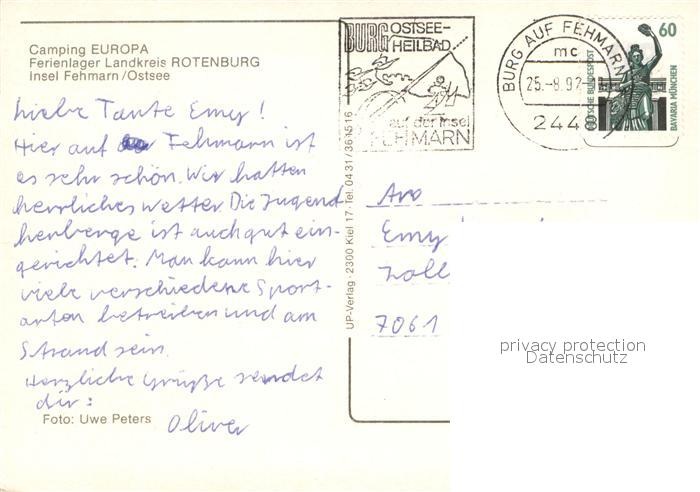 Camping EUROPA
Ferienlager Landkreis ROTENBURG
Insel Fehmarn/Ostsee
Liebe Tante Emy!
Hier auf Fehmarn ist
es sehr schön. Wir hatten
herrliches Wetter. Die Jugend
herberge ist auch gut ein-
gerichtet. Man kann hier
viele verschiedene Sport-
arten betreiben und am
Strand sein.
Herzliche Grüße sendet
dir:
Oliver
Foto: Uwe Peters
UP-Verlag · 2300 Kiel 17 · Tel. 04 31/36
BURG OSTSEE-
HEILBAD
auf der Insel
FEHMARN
BURG AUF FEHMARN
mc
25.-8.92
2448
60
DEUTSCHE BUNDESPOST
BAVARIA MÜNCHEN
Emy
7061
privacy protection
Datenschutz